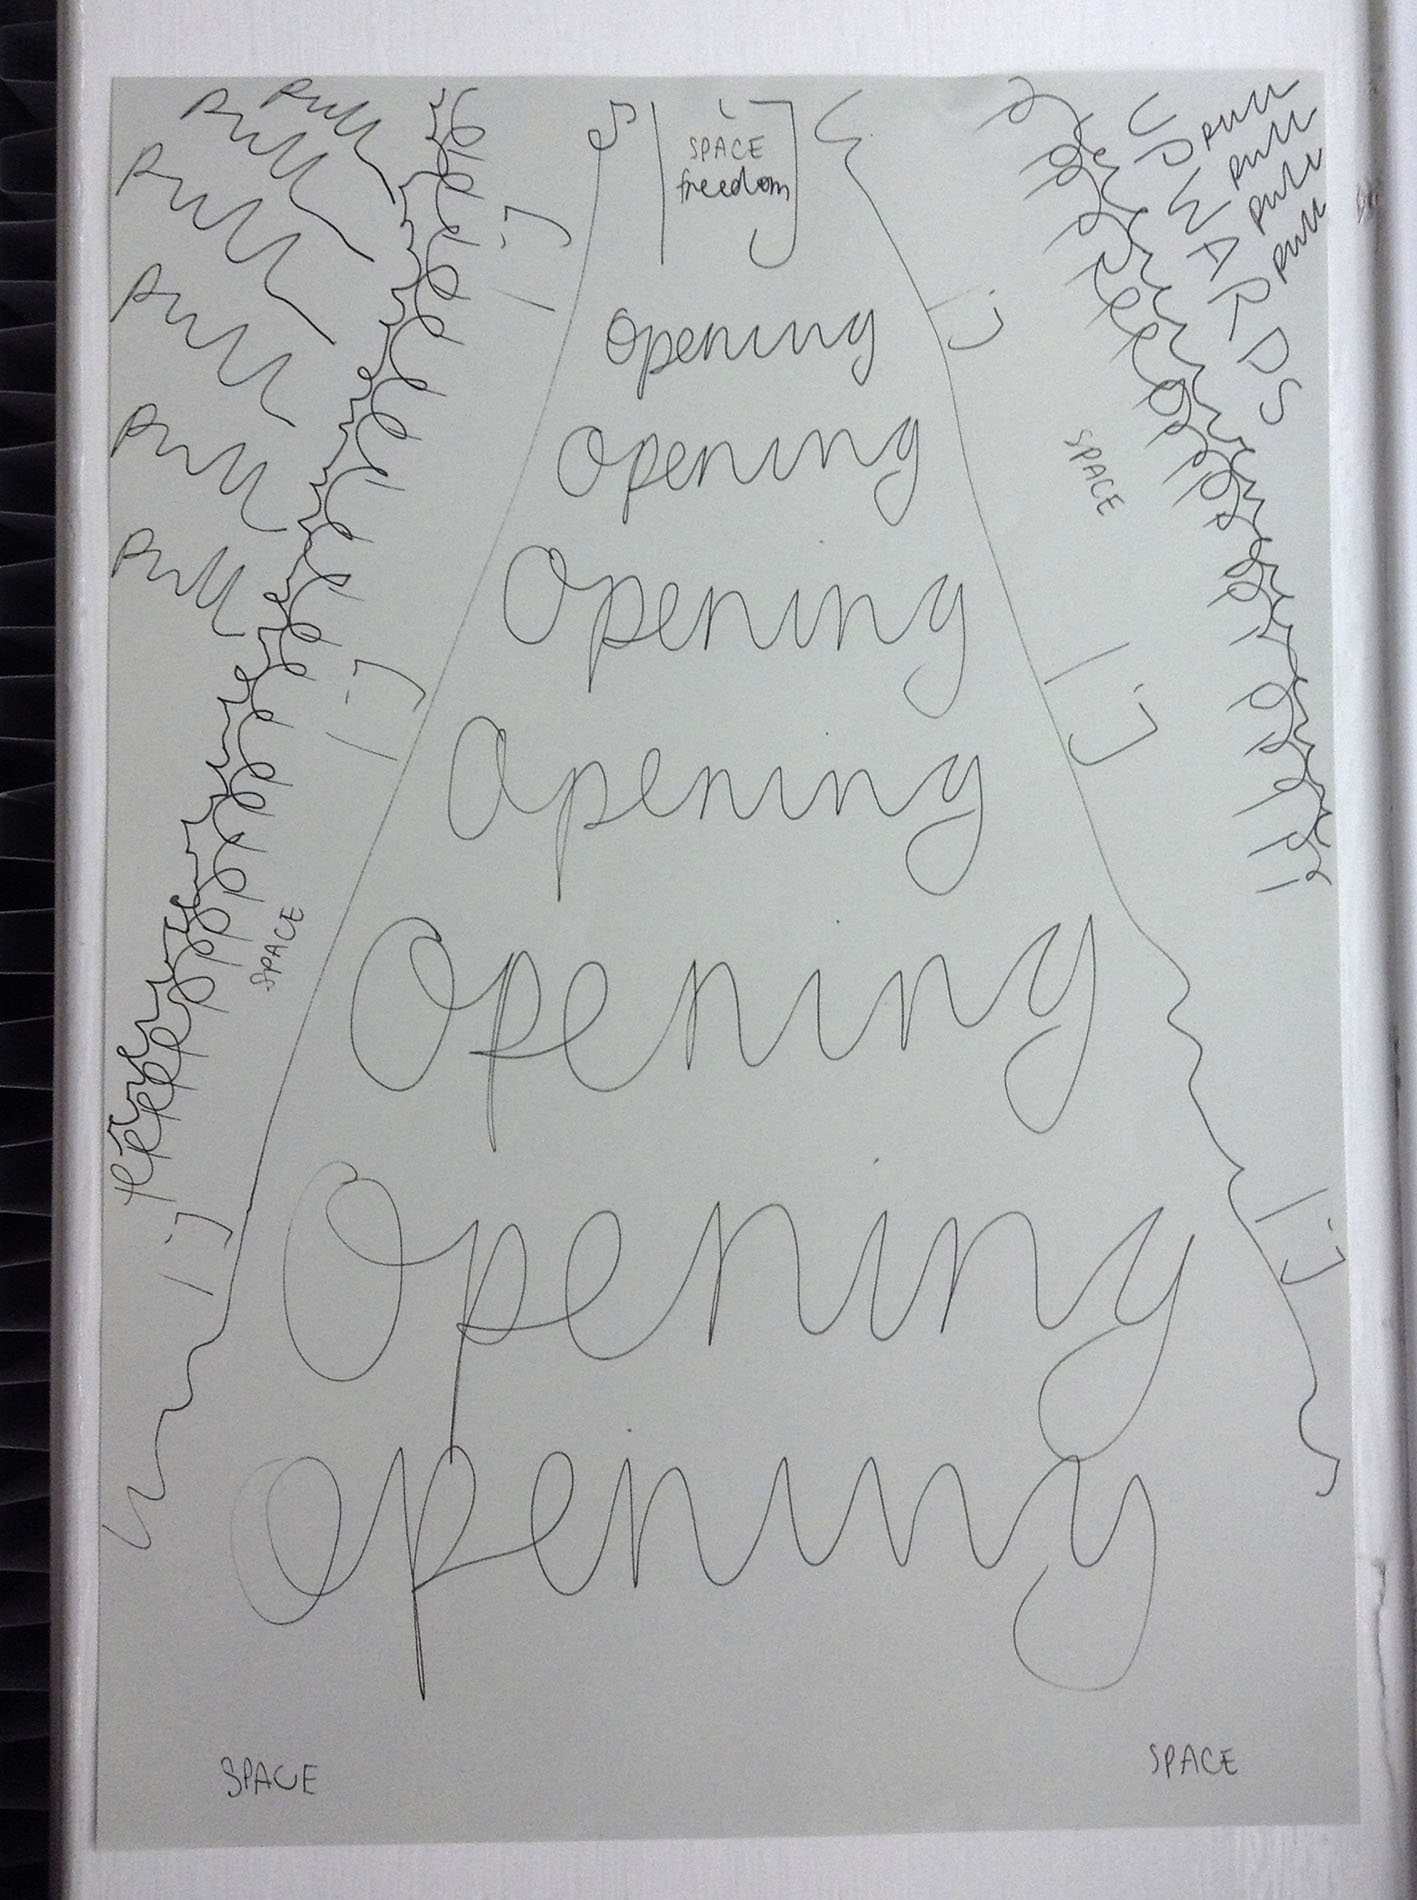 pull
pull
pull
pull
pull
pull
SPACE
freedom
UPWARDS
pull
pull
pull
pull
opening
opening
Opening
Opening
Opening
Opening
opening
SPACE
SPACE
SPACE
SPACE